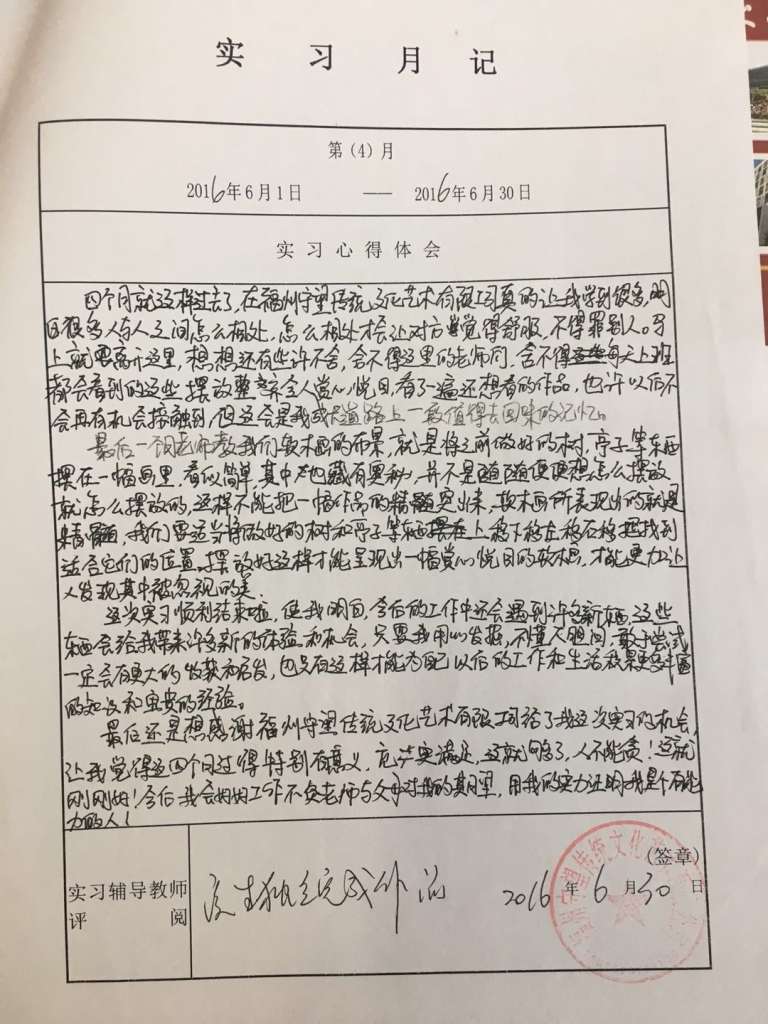 实习月记
第(4)月
2016年6月1日 —— 2016年6月30日
实习心得体会
四个月就这样过去了,在福州守望传统文化艺术有限公司真的让我学到很多,明
白很多人与人之间怎么相处,怎么相处才会让对方觉得舒服,不得罪别人。马
上就要离开这里,想想还有些许不舍,舍不得这里的老师同,舍不得每天上班
都会看到的这些摆放整齐令人赏心悦目,看了一遍还想看的作品,也许以后不
会再有机会接触到,但这会是我成长道路上一段值得去回味的记忆。
最后一个月老师教我们软木画的布景,就是将之前做好的树,亭子等东西
摆在一幅画里,看似简单,其中也藏有奥秘,并不是随随便便想怎么摆放
就怎么摆放的,这样不能把一幅作品的精髓突出来,软木画所表现出的就是
精髓,我们要适当将做好的树和亭子等东西摆在上移下移左移右移把找到
适合它们的位置,摆放好这样才能呈现出一幅赏心悦目的软木画,才能更加让
人发现其中被忽视的美。
这次实习顺利结束啦,使我明白,今后的工作中还会遇到许多新东西,这些
东西会给我带来许多新的体验和机会,只要我用心发掘,不懂不胆问,敢于尝试
一定会有更大的收获和启发,也只有这样才能为自己以后的工作和生活积累更多丰富
的知识和宝贵的经验。
最后还是想感谢福州守望传统文化艺术有限公司给了我这次实习的机会,
让我觉得这四个月过得特别有意义,充实满足,这就够了,人不能贪!这就
刚刚好!今后我会好好工作不负老师与父母对我的期望,用我的实力证明我是个有能
力的人!
实习辅导教师
评阅
独立完成作
(签章)
2016年6月30日
守望传统文化